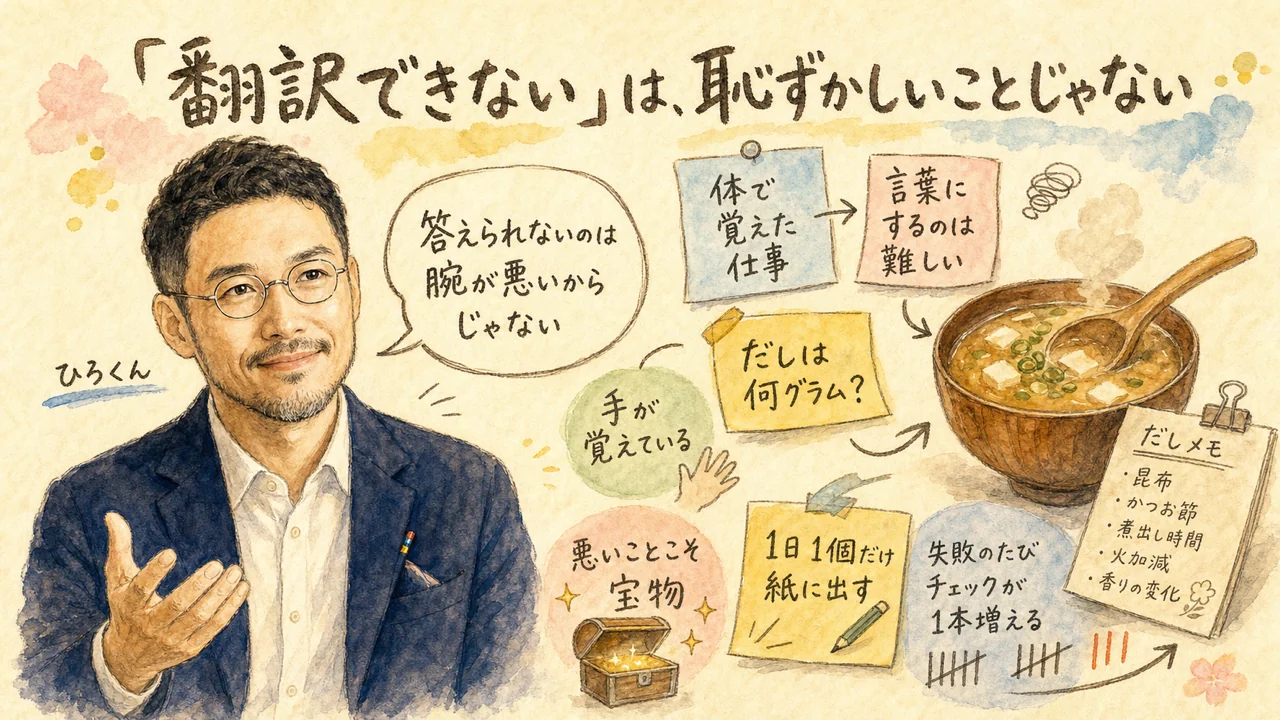 「翻訳できない」は、恥ずかしいことじゃない
ひろくん
答えられないのは
腕が悪いから
じゃない
体で
覚えた
仕事
言葉に
するのは
難しい
だしは
何グラム?
手が
覚えている
悪いことこそ
宝物
1日1個だけ
紙に出す
失敗のたび
チェックが
1本増える
だしメモ
・昆布
・かつお節
・煮出し時間
・火加減
・香りの変化